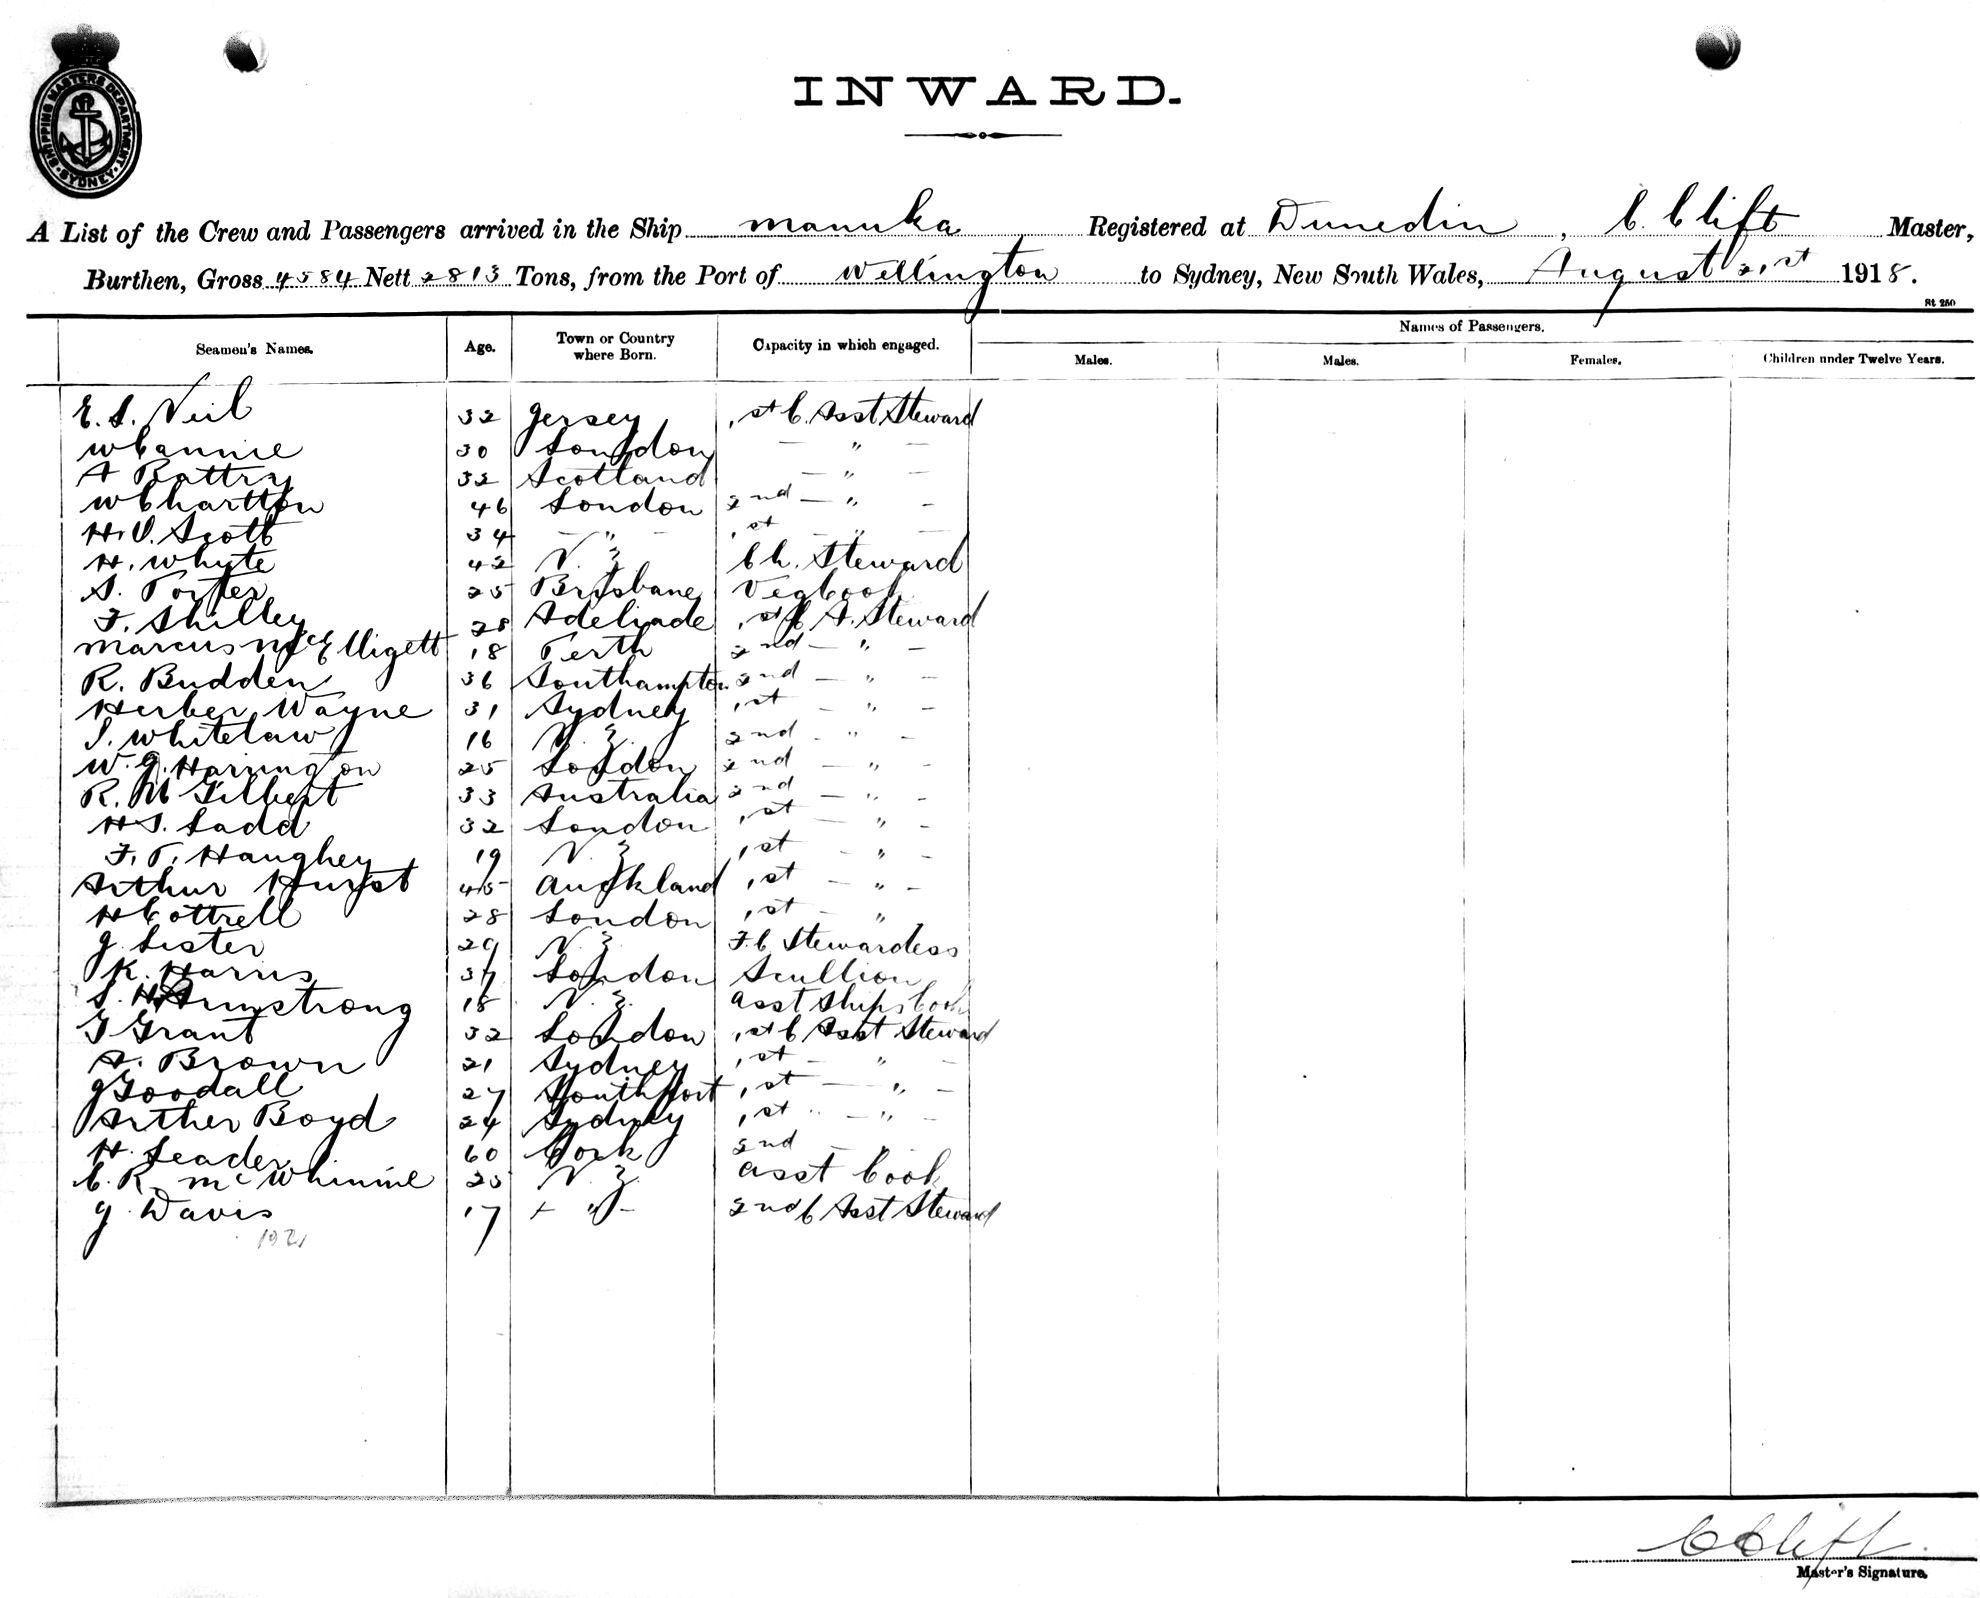 SHIPPING MASTERS DEPARTMENT
SYDNEY
INWARD.
A List of the Crew and Passengers arrived in the Ship Manuka Registered at Dunedin, C. Clift Master,
Burthen, Gross 4584 Nett 2813 Tons, from the Port of Wellington to Sydney, New South Wales, August 21st 1918.
St 250
Seamen's Names. Age. Town or Country where Born. Capacity in which engaged. Names of Passengers.
Males. Males. Females. Children under Twelve Years.
E. S. Neil 32 Jersey 1st C. Asst Steward
W Cannie 30 London — " —
A Battry 32 Scotland — " —
W Chartton 46 London 2nd — " —
H. V. Scott 34 — " — 1st — " —
H. Whyte 42 N. Z. Ch. Steward
S. Porter 25 Brisbane Veg Cook
F. Shilley 28 Adeliade 1st C A. Steward
Marcus McElligett 18 Perth 2nd — " —
R. Budden 36 Southampton 2nd — " —
Herber Wayne 31 Sydney 1st — " —
S. Whitelaw 16 N. Z. 2nd - " -
W. J. Harrington 25 London 2nd — " -
R. M Gilbert 33 Australia 2nd — " -
H S. Ladd 32 London 1st — " -
F. P. Haughey 19 N. Z 1st — " -
Arthur Hurst 45 Auckland 1st — " -
H Cottrell 28 London 1st — "
J. Lister 29 N. Z F. C Stewardess
K. Harris 37 London Scullion
S. H. Armstrong 18 N. Z. Asst Ships Cook
G Grant 32 London 1st C Asst Steward
A. Brown 21 Sydney 1st — " —
J Goodall 27 Southport 1st — " —
Arther Boyd 24 Sydney 1st — " —
H. Leader 60 Cork 2nd — " —
C. R. McWhinnie 25 N. Z. Asst Cook
J. Davis 17 — " — 2nd C Asst Steward
C Clift.
Master's Signature.